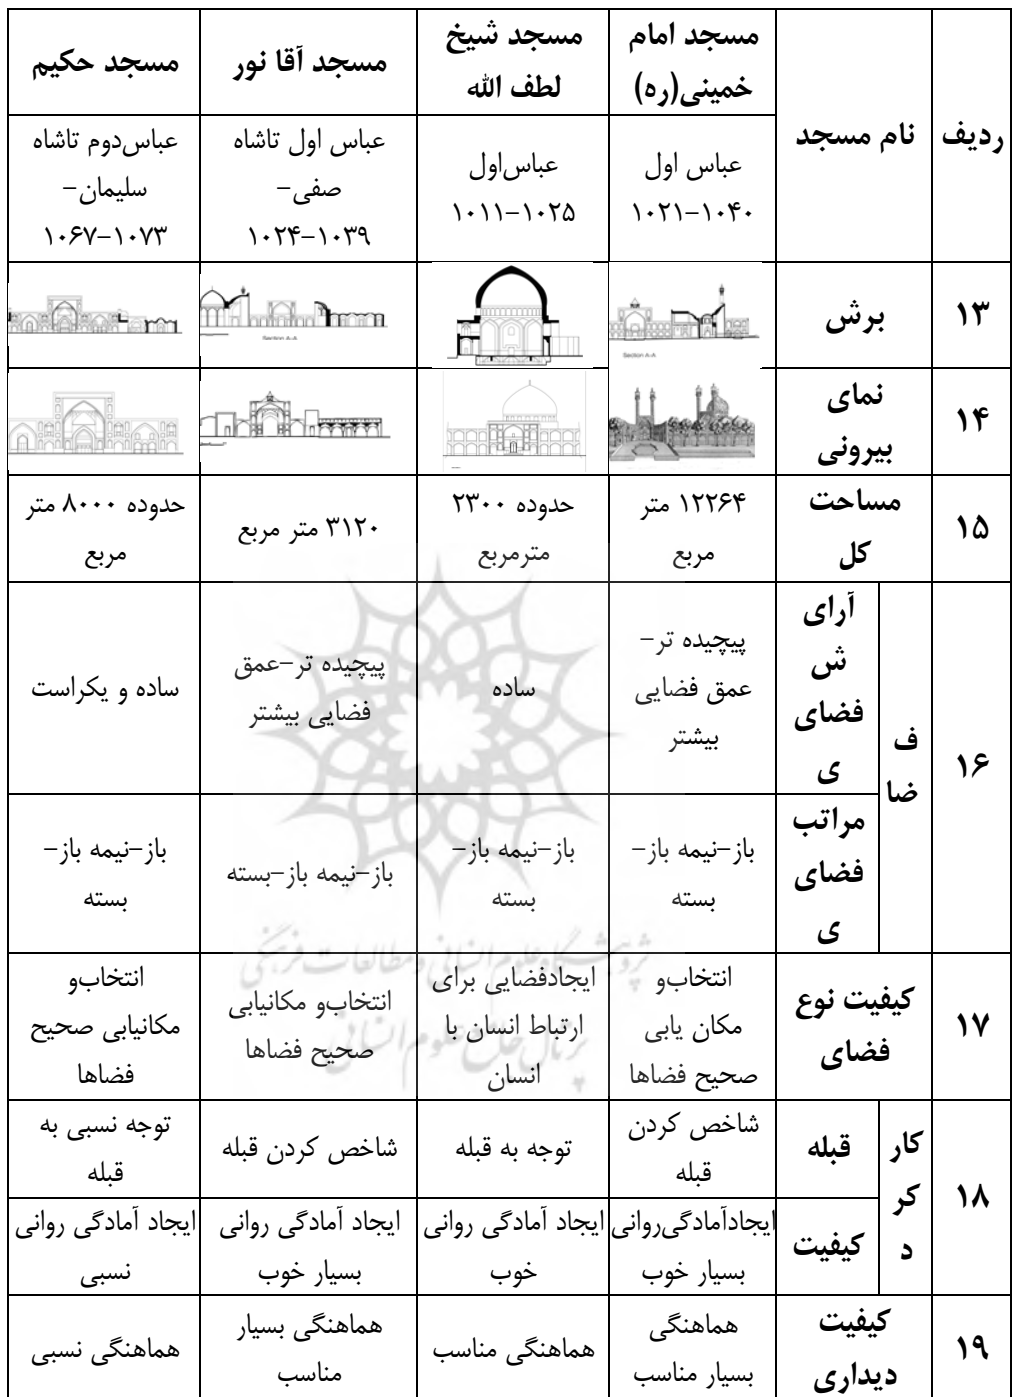 ردیف
نام مسجد
مسجد امام
خمینی(ره)
مسجد شیخ
لطف الله
مسجد آقا نور
مسجد حکیم
عباس اول
۱۰۲۱-۱۰۴۰
عباس‌اول
۱۰۱۱-۱۰۲۵
عباس اول تاشاه
صفی-
۱۰۲۴-۱۰۳۹
عباس‌دوم تاشاه
سلیمان-
۱۰۶۷-۱۰۷۳
۱۳
برش
Section A-A
Section A-A
۱۴
نمای
بیرونی
۱۵
مساحت
کل
۱۲۲۶۴ متر
مربع
حدوده ۲۳۰۰
مترمربع
۳۱۲۰ متر مربع
حدوده ۸۰۰۰ متر
مربع
۱۶
ف
ضا
آرای
ش
فضای
ی
پیچیده تر-
عمق فضایی
بیشتر
ساده
پیچیده تر-عمق
فضایی بیشتر
ساده و یکراست
مراتب
فضای
ی
باز-نیمه باز-
بسته
باز-نیمه باز-
بسته
باز-نیمه باز-بسته
باز-نیمه باز-
بسته
پژوهشگاه علوم انسانی و مطالعات فرهنگی
پرتال جامع علوم انسانی
۱۷
کیفیت نوع
فضای
انتخاب‌و
مکان یابی
صحیح فضاها
ایجادفضایی برای
ارتباط انسان با
انسان
انتخاب‌و مکانیابی
صحیح فضاها
انتخاب‌و
مکانیابی صحیح
فضاها
۱۸
کار
کر
د
قبله
شاخص کردن
قبله
توجه به قبله
شاخص کردن قبله
توجه نسبی به
قبله
کیفیت
ایجادآمادگی‌روانی
بسیار خوب
ایجاد آمادگی روانی
خوب
ایجاد آمادگی روانی
بسیار خوب
ایجاد آمادگی روانی
نسبی
۱۹
کیفیت
دیداری
هماهنگی
بسیار مناسب
هماهنگی مناسب
هماهنگی بسیار
مناسب
هماهنگی نسبی